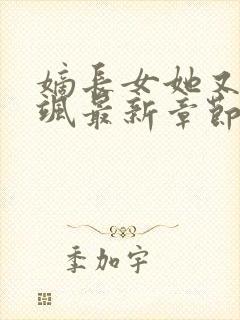 嫡长女她又
飒最新章节
季加宇